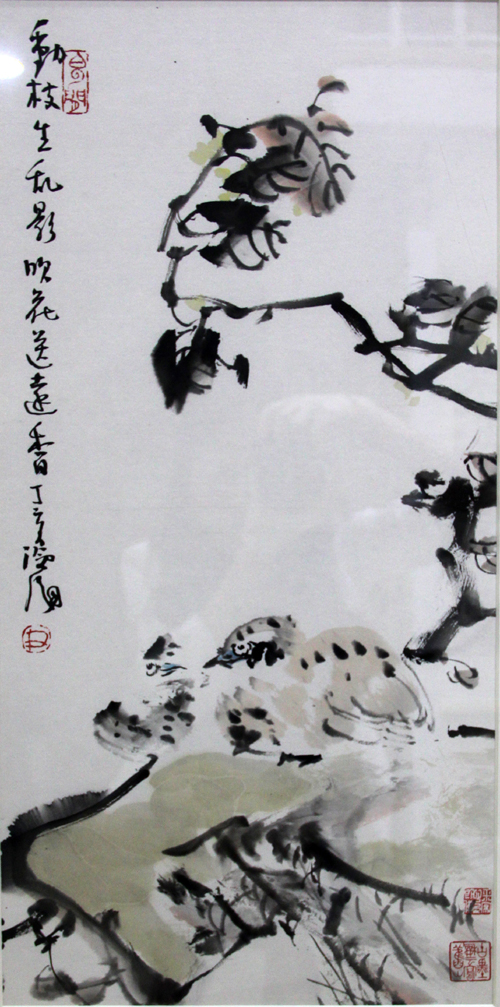 動枝生乱影吹花送遠香丁亥